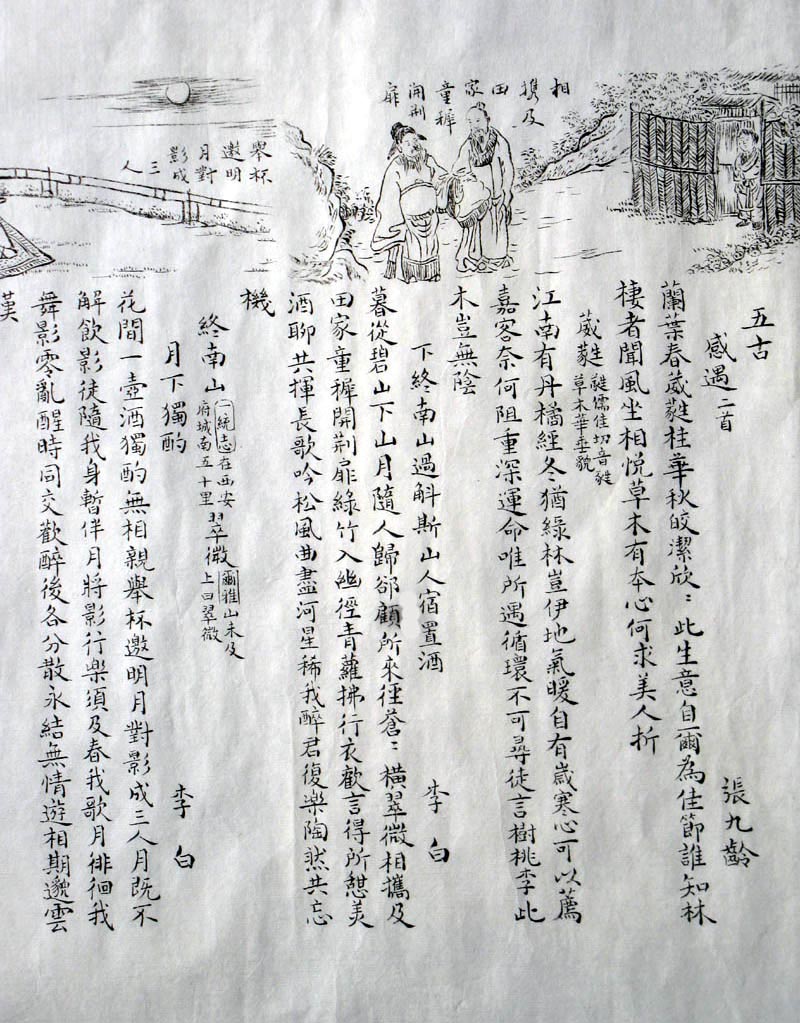 相
携及
田
家
童稚
開荆
扉
舉杯
邀明
月對
影成
三
人
五古
感遇二首
張九齡
蘭葉春葳蕤桂華秋皎潔欣〻此生意自爾為佳節誰知林
棲者聞風坐相悅草木有本心何求美人折
葳蕤
蕤儒佳切音蕤
草木華垂貌
江南有丹橘經冬猶綠林豈伊地氣暖自有歲寒心可以薦
嘉客奈何阻重深運命唯所遇循環不可尋徒言樹桃李此
木豈無陰
下終南山過斛斯山人宿置酒
李白
暮從碧山下山月隨人歸郤顧所來徑蒼〻橫翠微相攜及
田家童稺開荆扉綠竹入幽徑青蘿拂行衣歡言得所憇美
酒聊共揮長歌吟松風曲盡河星稀我醉君復樂陶然共忘
機
終南山
一統志在西安
府城南五十里
翠微
爾雅山未及
上曰翠微
月下獨酌
李白
花間一壺酒獨酌無相親舉杯邀明月對影成三人月既不
解飲影徒隨我身暫伴月將影行樂須及春我歌月徘徊我
舞影零亂醒時同交歡醉後各分散永結無情遊相期邈雲
漢